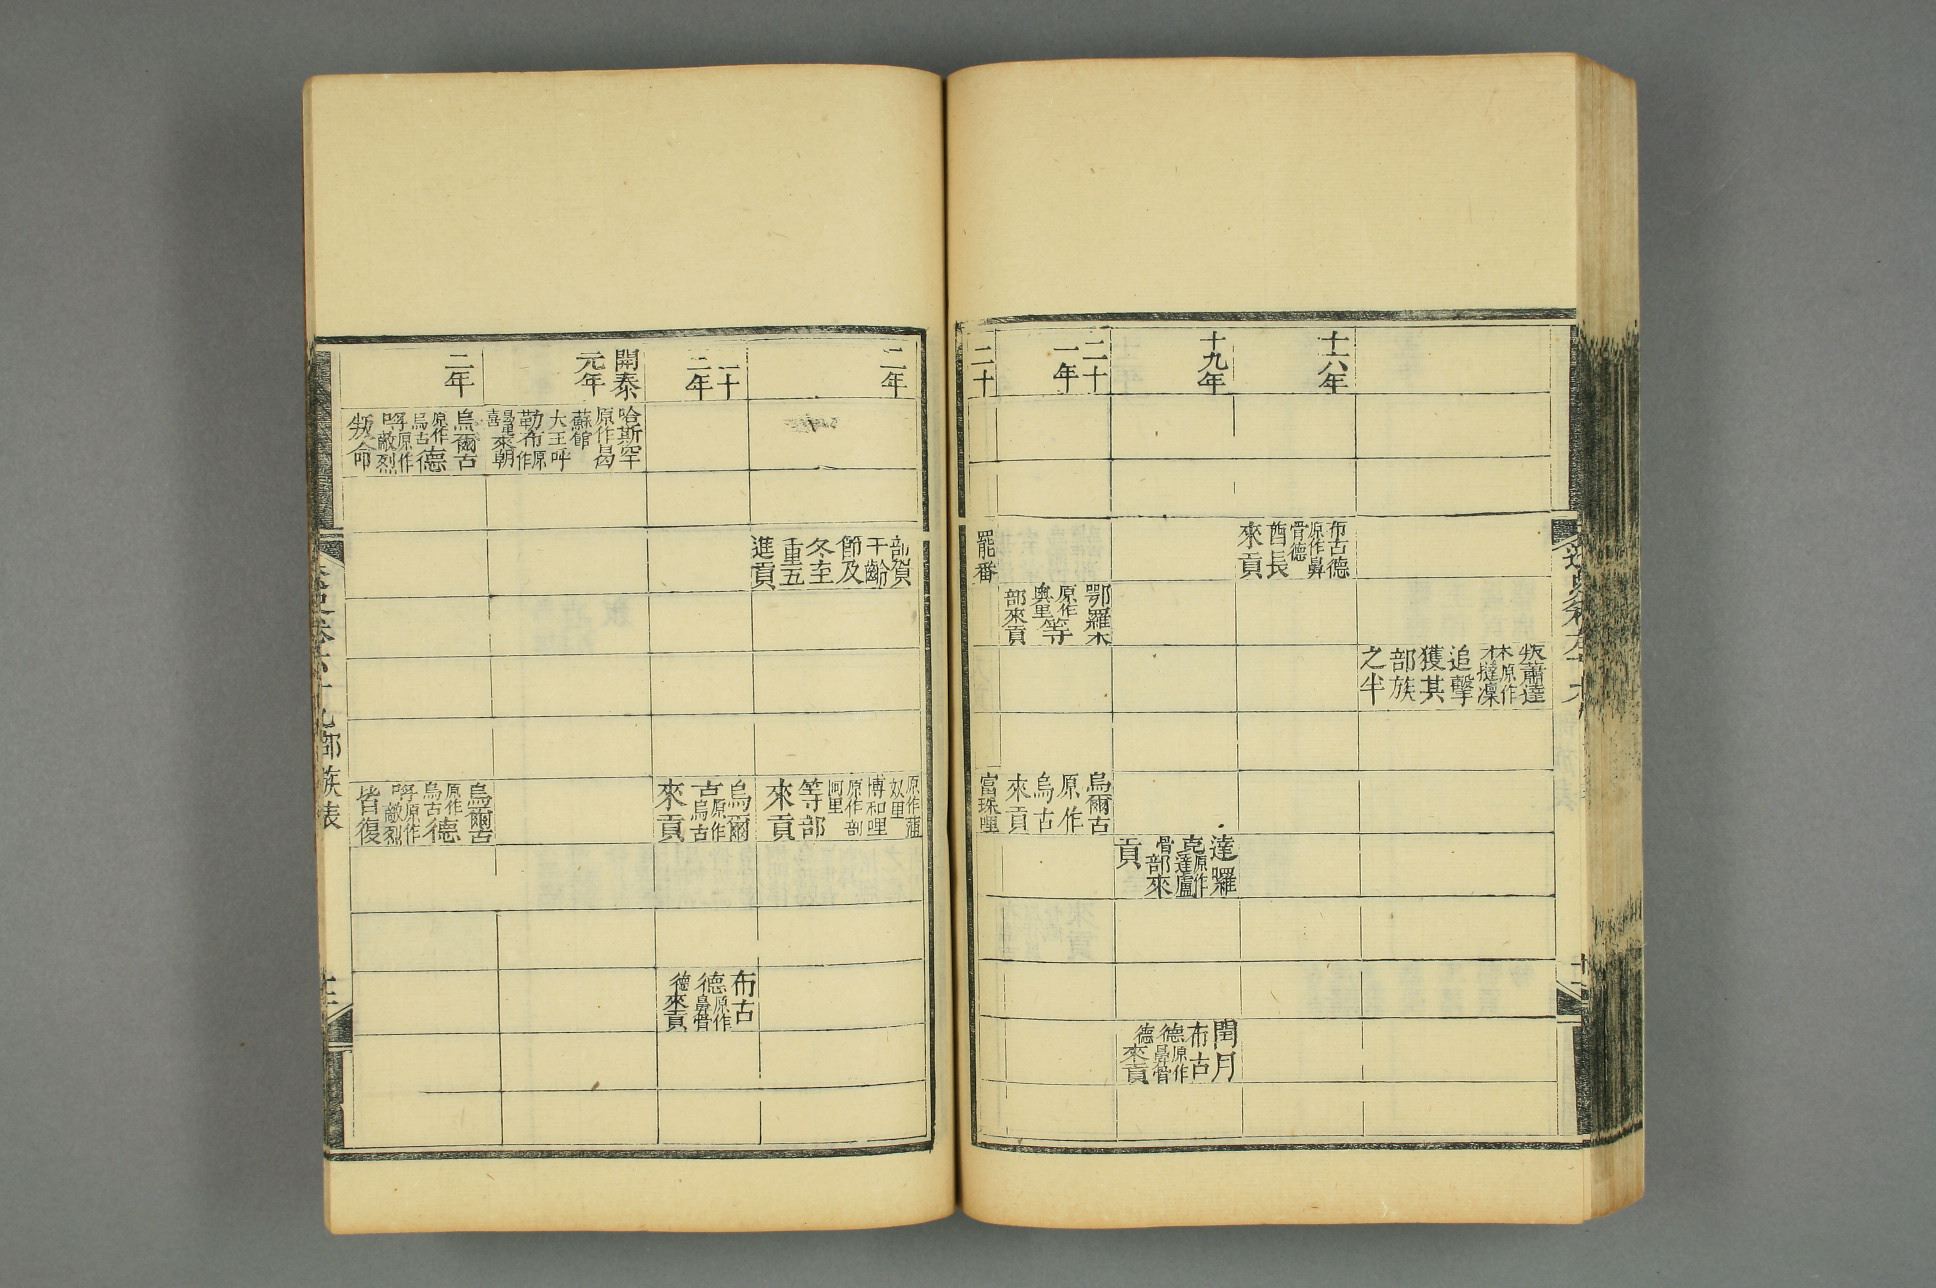 叛蕭達
林原作
撻凜
追擊
獲其
部族
之半
十六年
布古德
原作鼻
骨德
酋長
來貢
十九年
達囉
克原作
達盧
骨部來
貢
閏月
布古
德原作
鼻骨
德來貢
二十
一年
鄂羅木
原作
奧里等
部來貢
烏爾古
原作
烏古
來貢
二十
罷番
富珠哩
二年
部賀
千齡
節及
冬至
重五
進貢
原作蒲
奴里
博和哩
原作剖
阿里
等部
來貢
二十
二年
烏爾
古原作
烏古
來貢
布古
德原作
鼻骨
德來貢
開泰
元年
哈斯罕
原作曷
蘇館
大王呼
勒布原作
曷里
喜來朝
二年
烏爾古
原作
烏古德
呼原作
敵烈
叛命
烏爾古
原作
烏古德
呼原作
敵烈
皆復
遼史卷六十九部族表
十二